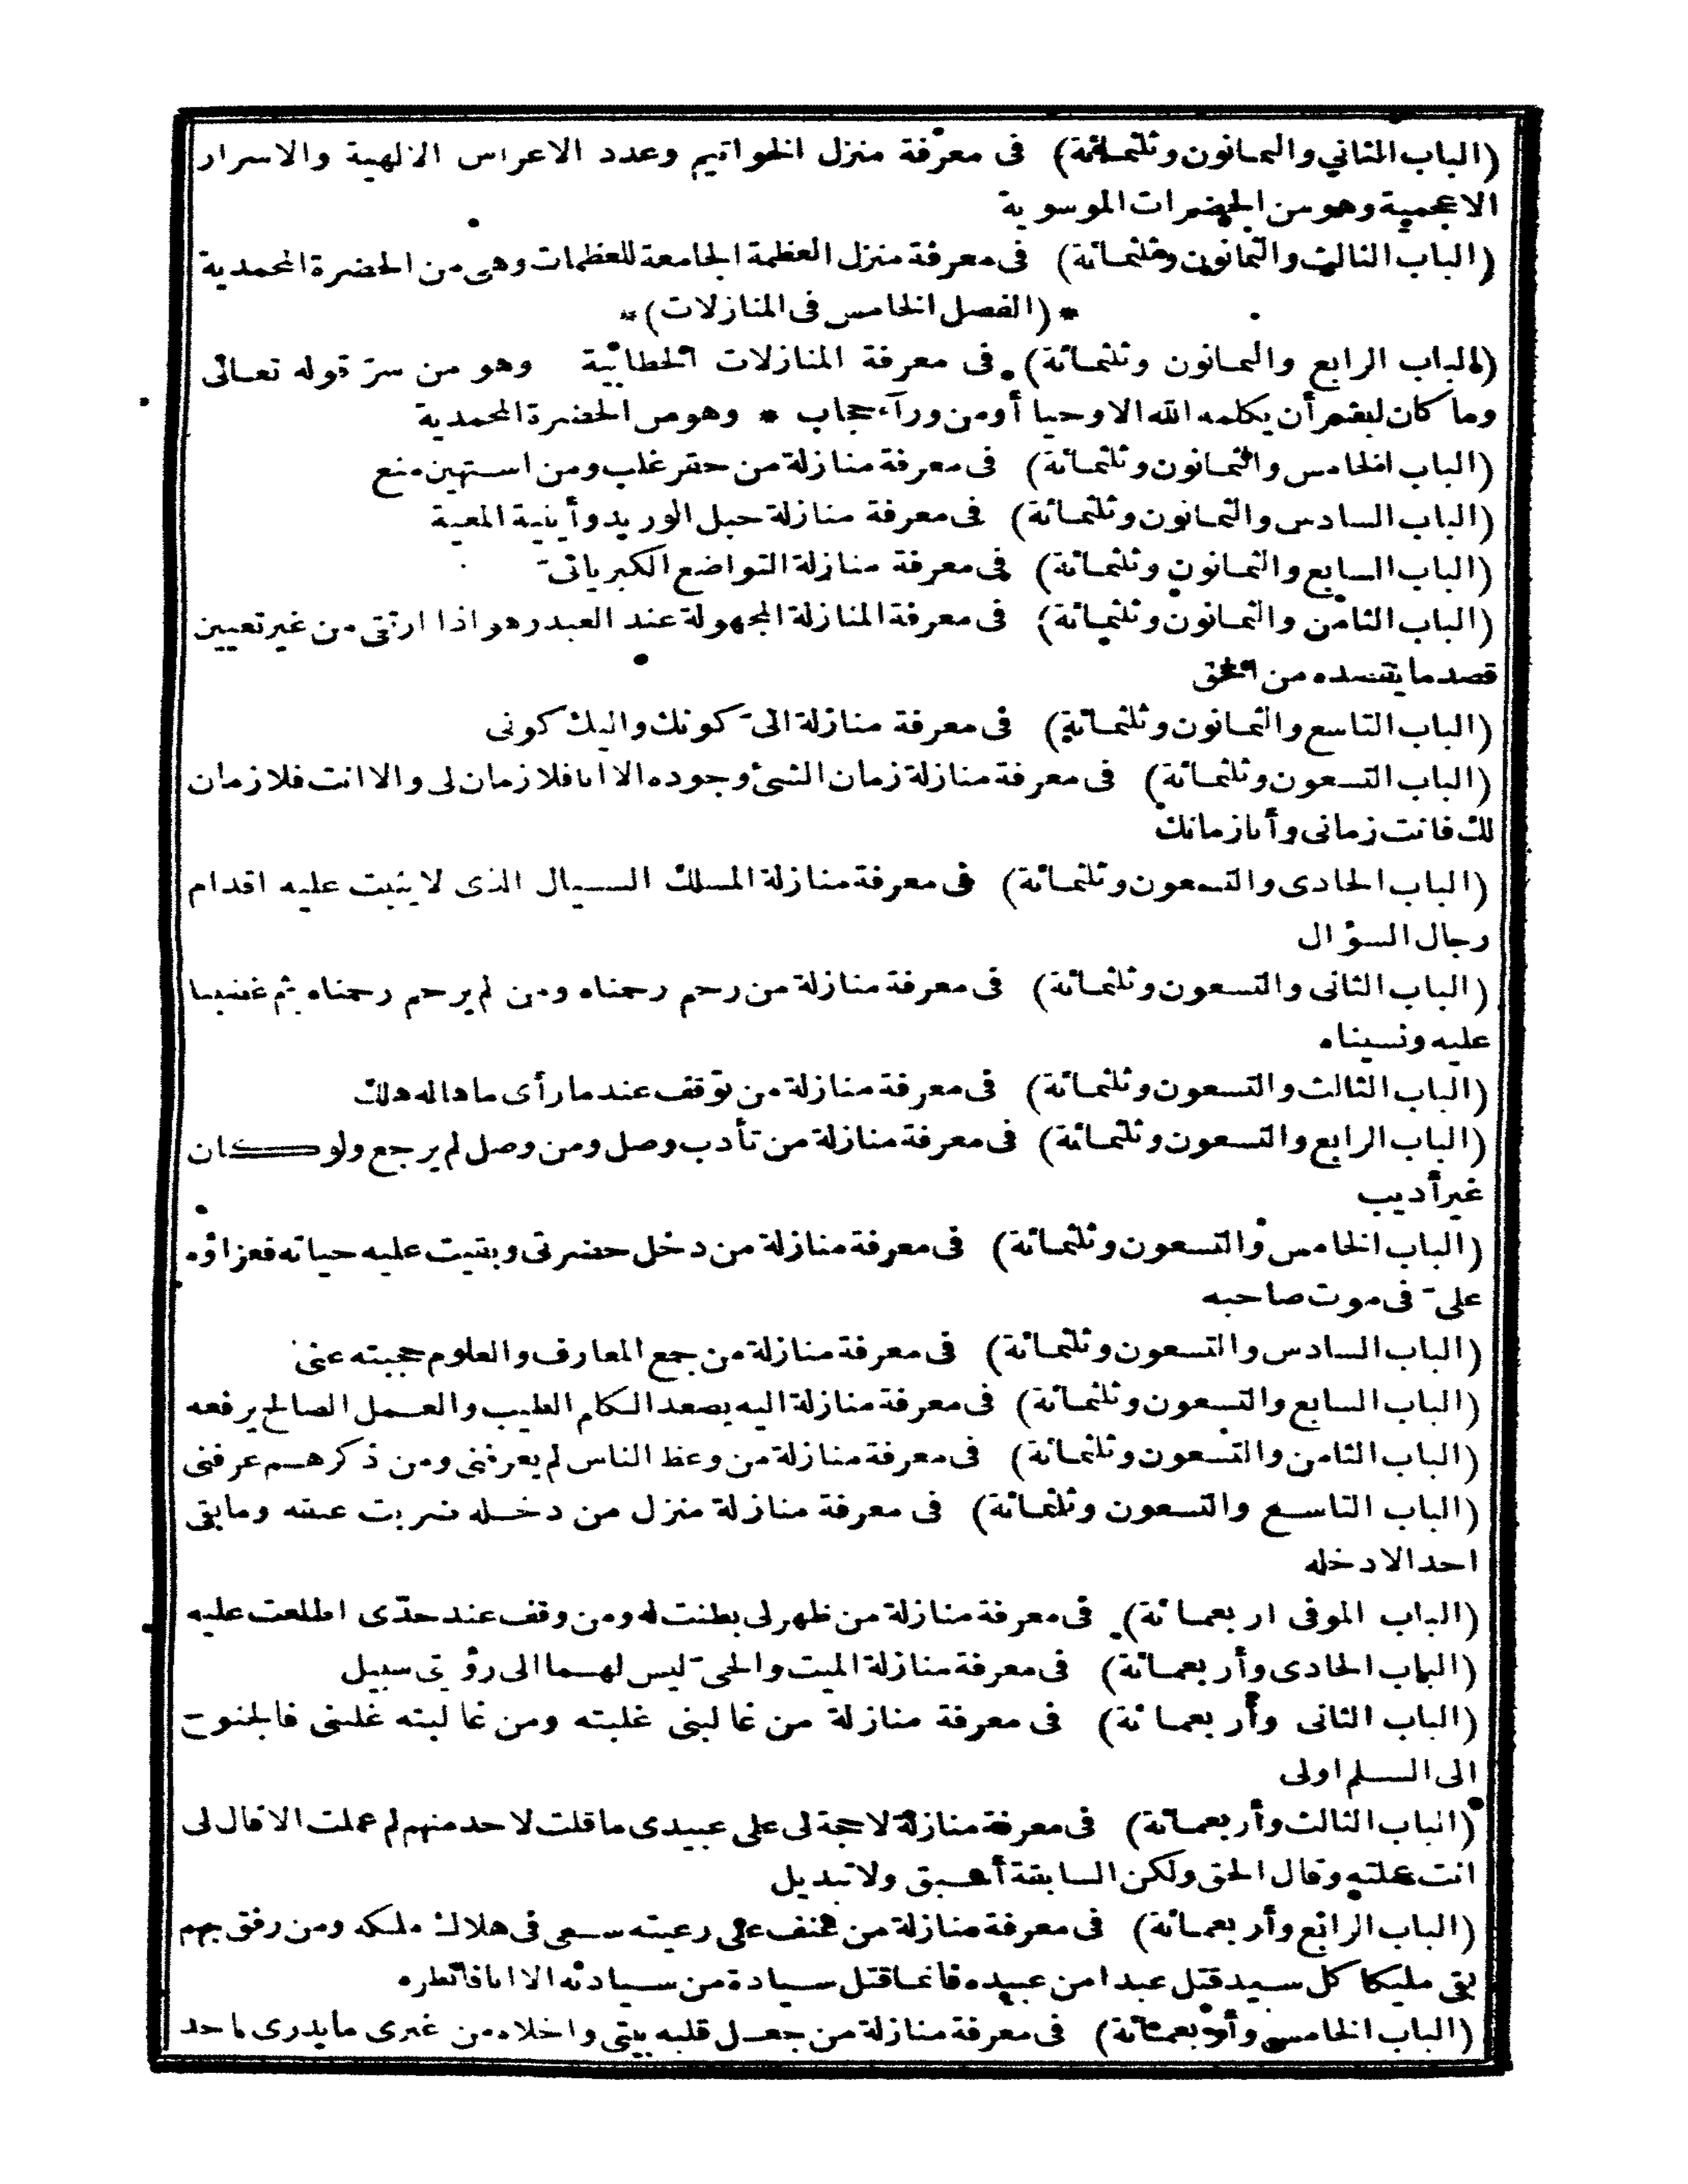 (الباب الثاني والثمانون وثلثمائة) فى معرفة منزل الخواتيم وعدد الاعراس الالهية والاسرار
الاعجمية وهو من الحضرات الموسوية
(الباب الثالث والثمانون وثلثمائة) فى معرفة منزل العظمة الجامعة للعظمات وهى من الحضرة المحمدية
* (الفصل الخامس فى المنازلات) *
(الباب الرابع والثمانون وثلثمائة) فى معرفة المنازلات الخطابية وهو من سرّ قوله تعالى
وما كان لبشر أن يكلمه الله الا وحيا أو من ورآء حجاب * وهو من الحضرة المحمدية
(الباب الخامس والثمانون وثلثمائة) فى معرفة منازلة من حقر غلب ومن استهين منع
(الباب السادس والثمانون وثلثمائة) فى معرفة منازلة حبل الوريد وأينية المعية
(الباب السابع والثمانون وثلثمائة) فى معرفة منازلة التواضع الكبريائىّ
(الباب الثامن والثمانون وثلثمائة) فى معرفة المنازلة المجهولة عند العبد وهو اذا ارتقى من غير تعيين
قصد ما يقصده من الحق
(الباب التاسع والثمانون وثلثمائة) فى معرفة منازلة الىّ كونك واليك كونى
(الباب التسعون وثلثمائة) فى معرفة منازلة زمان الشئ وجوده الا انا فلا زمان لى والا انت فلا زمان
لك فانت زمانى وأنا زمانك
(الباب الحادى والتسعون وثلثمائة) فى معرفة منازلة المسلك السيال الذى لا يثبت عليه اقدام
رجال السؤال
(الباب الثانى والتسعون وثلثمائة) فى معرفة منازلة من رحم رحمناه ومن لم يرحم رحمناه ثم غضبنا
عليه ونسيناه
(الباب الثالث والتسعون وثلثمائة) فى معرفة منازلة من توقف عند ما رأى ما هاله هلك
(الباب الرابع والتسعون وثلثمائة) فى معرفة منازلة من تأدب وصل ومن وصل لم يرجع ولو كان
غير أديب
(الباب الخامس والتسعون وثلثمائة) فى معرفة منازلة من دخل حضرتى وبقيت عليه حياته فعزاؤه
علىّ فى موت صاحبه
(الباب السادس والتسعون وثلثمائة) فى معرفة منازلة من جمع المعارف والعلوم حجبته عنى
(الباب السابع والتسعون وثلثمائة) فى معرفة منازلة اليه يصعد الكلم الطيب والعمل الصالح يرفعه
(الباب الثامن والتسعون وثلثمائة) فى معرفة منازلة من وعظ الناس لم يعرفنى ومن ذكرهم عرفنى
(الباب التاسع والتسعون وثلثمائة) فى معرفة منازلة منزل من دخله ضربت عنقه وما بقى
احد الا دخله
(الباب الموفى اربعمائة) فى معرفة منازلة من ظهر لى بطنت له ومن وقف عند حدّى اطلعت عليه
(الباب الحادى وأربعمائة) فى معرفة منازلة الميت والحىّ ليس لهما الى رؤيتى سبيل
(الباب الثانى وأربعمائة) فى معرفة منازلة من غالبنى غلبته ومن غالبته غلبنى فالجنوح
الى السلم اولى
(الباب الثالث وأربعمائة) فى معرفة منازلة لا حجة لى على عبيدى ما قلت لاحد منهم لم عملت الا قال لى
انت عملته وقال الحق ولكن السابقة أسبق ولا تبديل
(الباب الرابع وأربعمائة) فى معرفة منازلة من عنف على رعيته سعى فى هلاك ملكه ومن رفق بهم
بقى مليكا كل سيد قتل عبدا من عبيده فانما قتل سيادة من سيادته الا انا فانظره
(الباب الخامس وأربعمائة) فى معرفة منازلة من جعل قلبه بيتى واخلاه من غيرى ما يدرى احد